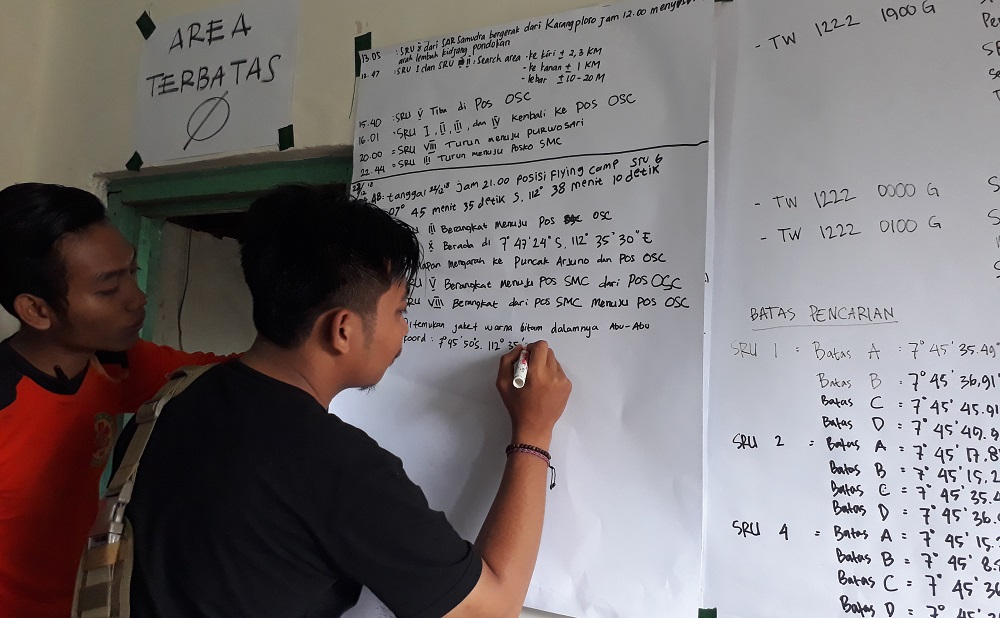 AREA
TERBATAS
13.05 : SRU II dari SAR Samudra bergerak dari Karangploso jam 12.00
arah lembah kidjang pondokan
12.47 : SRU I dan SRU II : Search area - ke kiri ± 2,3 KM
- ke kanan ± 1 KM
- lebar ± 10-20 M
15.40 : SRU V Tiba di Pos OSC
16.01 SRU I, II, III, dan IV Kembali Ke POS OSC
20.00 = SRU VIII Turun menuju PURWOSARI
22.44 = SRU III Turun menuju Posko SMC
tanggal jam 21.00 posisi Flying camp SRU 6
07° 45 menit 35 detik S, 112° 38 menit 10 detik
III Berangkat Menuju Pos OSC
X Berada di 7°47'24" S, 112° 35' 30" E
mengarah ke Puncak Arjuno dan Pos OSC
V Berangkat Menuju POS SMC dari POS OSC
RU VIII Berangkat dari POS SMC Menuju POS OSC
itemukan jaket warna hitam dalamnya Abu-Abu
oord : 7°45'50"S. 112° 35'
- TW 1222 1900 G
- TW 1222 0000 G
- TW 1222 0100 G
BATAS PENCARIAN
SRU 1 = Batas A : 7° 45' 35.49"
Batas B = 7° 45' 36,91"
Batas C = 7° 45' 45.91
Batas D = 7° 45' 49.9
SRU 2 = Batas A = 7° 45' 17.8
Batas B = 7° 45' 15.2
Batas C = 7° 45' 35.4
Batas D = 7° 45' 36.
SRU 4 = Batas A = 7° 45' 15.
Batas B = 7° 45' 8.
Batas C = 7° 45' 36
Batas D = 7° 45'